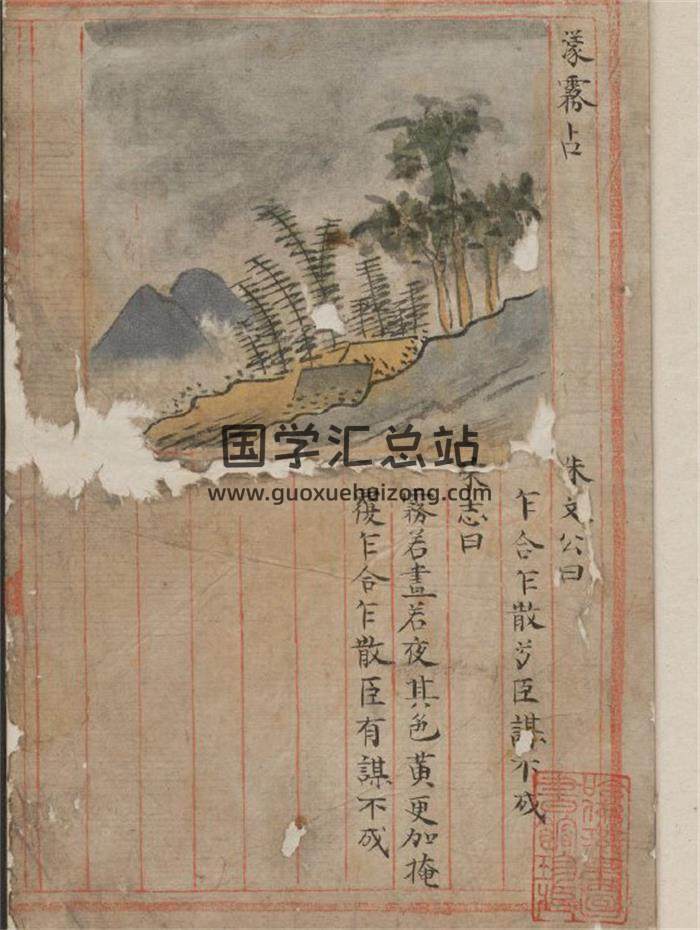 濛霧占
朱文公曰
乍合乍散為臣謀不成
宋志曰
霧若晝若夜其色黃更加掩
復乍合乍散臣有謀不成
国学汇总站
www.guoxuehuizong.com